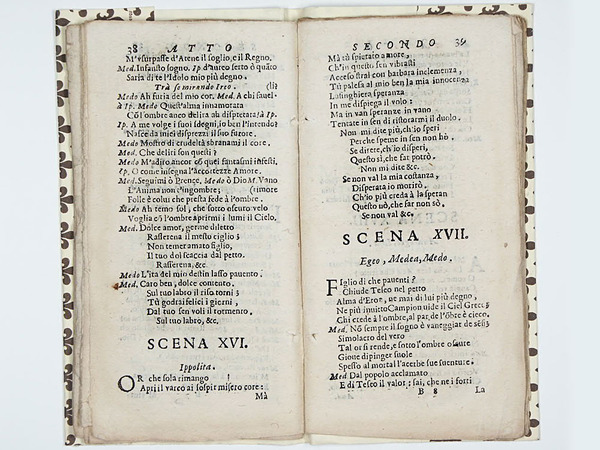 38 ATTO
M'vsurpasse d'Atene il soglio, e il Regno.
Med. Infausto sogno. Ip. d'aureo serto ò quāto
Saria di te l'Idolo mio più degno.
Trà se mirando Ireo. (li?
Medo Ah furia del mio cor. Med. A chi fauel-
à Ip. Medo Quest'alma innamorata
Cō l'ombre anco delira alla disperata! à Ip.
Ip. A me volge i suoi sdegni, io ben l'intendo:
Nasce da miei disprezzi il suo furore.
Medo Mostro di crudeltà sbranami il core.
Med. Che desiri son questi?
Medo M'adiro ancor cō quei fantasmi infesti.
Ip. O come insegna l'accortezze Amore.
Med. Seguimi ò Prence. Medo ò Dio M. Vano
L'Anima non t'ingombre; (timore
Folle è colui che presta fede à l'ombre.
Medo Ah temo sol, che sotto oscuro velo
Voglia cō l'ombre aprirmi i lumi il Cielo.
Med. Dolce amor, germe diletto
Rasserena il mesto ciglio;
Non temer amato figlio,
Il tuo dol scaccia dal petto.
Rasserena, &c.
Medo L'ira del mio destin lasso pauento.
Med. Caro ben, dolce contento;
Sul tuo labro il riso torni;
Tù godrai felici i giorni,
Dal tuo sen voli il tormento.
Sul tuo labro, &c.
SCENA XVI.
Ippolita.
OR che sola rimango
Apri il varco ai sospir misero core:
Mà
SECONDO 39
Mà tù spietato amore,
Ch'in questo sen vibrasti
Acceso stral con barbara inclemenza,
Tù palesa al mio ben la mia innocenza
Lusinghiera speranza
In me dispiega il volo:
Ma in van speranze in vano
Tentate in sen di ristorarmi il duolo.
Non mi dite più, ch'io speri
Perche speme in sen non hò.
Se direte, ch'io disperi,
Questo sì, che far potrò.
Non mi dite &c.
Se non val la mia costanza,
Disperata io morirò.
Ch'io più creda à la speran
Questo nò, che far non sò.
Se non val &c.
SCENA XVII.
Egeo, Medea, Medo.
Figlio di che pauenti?
Chiude Teseo nel petto
Alma d'Eroe, ne mai di lui più degno,
Ne più inuitto Campion vide il Ciel Greco;
Chi crede à l'ombre, al par de l'ōbre è cieco.
Med. Nō sempre il sogno è vaneggiar de sēsi;
Simolacro del vero
Tal or si rende, e sotto l'ombre oscure
Gioue dipinger suole
Spesso al mortal l'acerbe sue suenture.
Med. Dal popolo acclamato
E di Teseo il valor: sai, che ne i forti
B 8 La